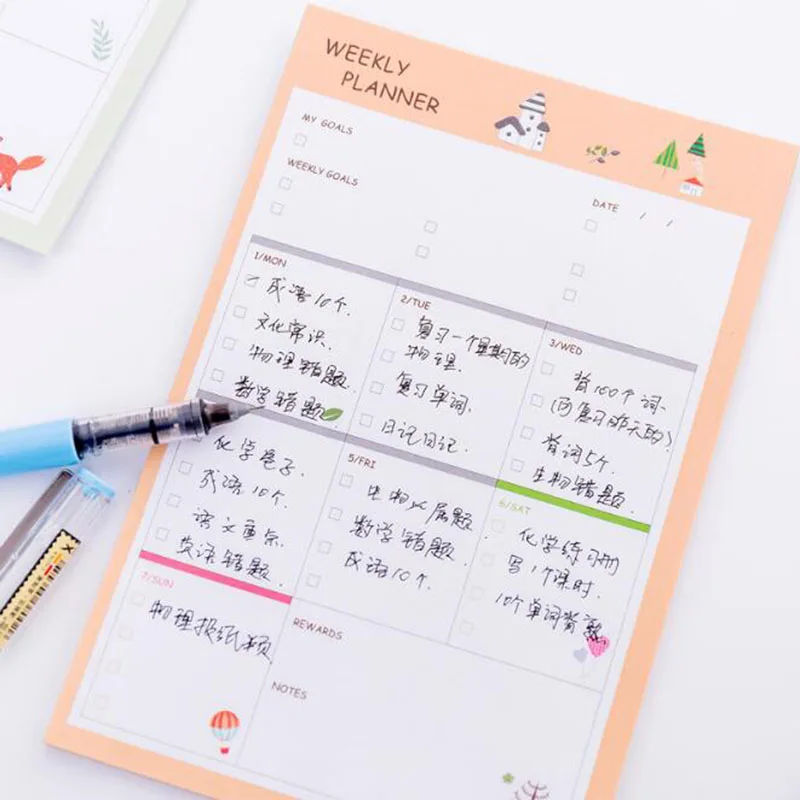 WEEKLY
PLANNER
MY GOALS
WEEKLY GOALS
DATE / /
1/MON
成语10个.
文化常识.
物理错题.
数学错题
2/TUE
复习一个星期的
物理.
复习单词.
日记日记.
3/WED
背100个词.
(可复习昨天的)
背词5个.
生物错题.
化学卷子.
成语10个.
语文重点.
英语错题.
5/FRI
生物
数学错题.
成语10个.
6/SAT
化学练习册
写1个课时.
10个单词背
7/SUN
物理报纸
REWARDS
NOTES